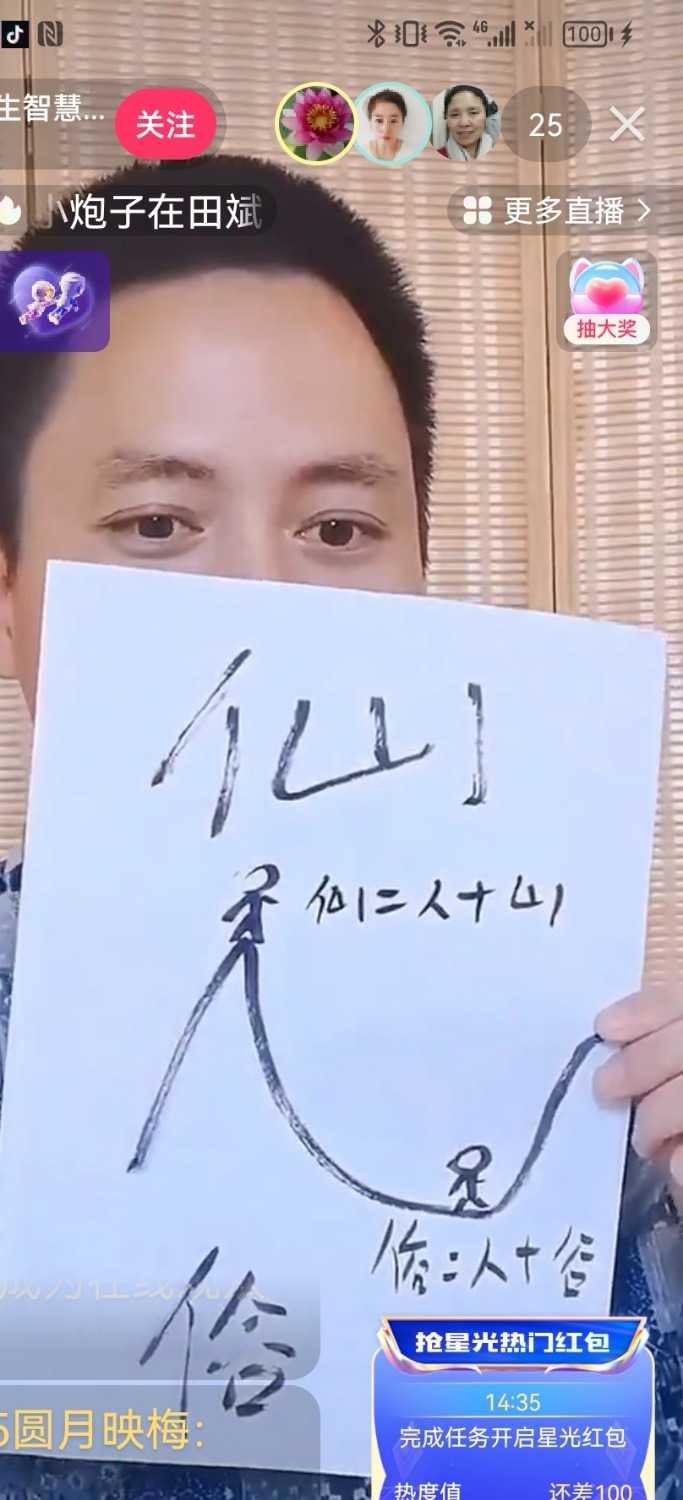 4G
100
生智慧...
关注
25
小炮子在田斌
更多直播
抽大奖
仙
仙=人+山
俗=人+谷
俗
抢星光热门红包
14:35
完成任务开启星光红包
5圆月映梅:
热度值 还差100